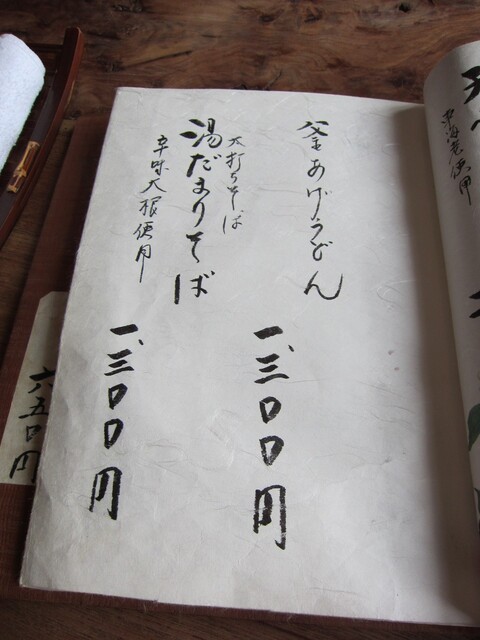 釜あげうどん
一、三〇〇円
太打ちそば
湯だまりそば
辛味大根使用
一、三〇〇円
六五〇円